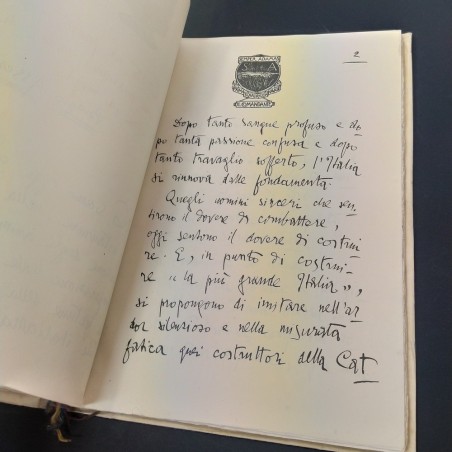 2
IL COMANDANTE
Dopo tanto sangue profuso e do-
po tanta passione confusa e dopo
tanto travaglio sofferto, l'Italia
si rinnova dalle fondamenta.
Quegli uomini sinceri che sen-
tirono il dovere di combattere,
oggi sentono il dovere di costrui-
re. E, in punto di costrui-
re "la più grande Italia",
si propongono di imitare nell'ar-
dor silenzioso e nella misurata
fatica quei costruttori della Cat